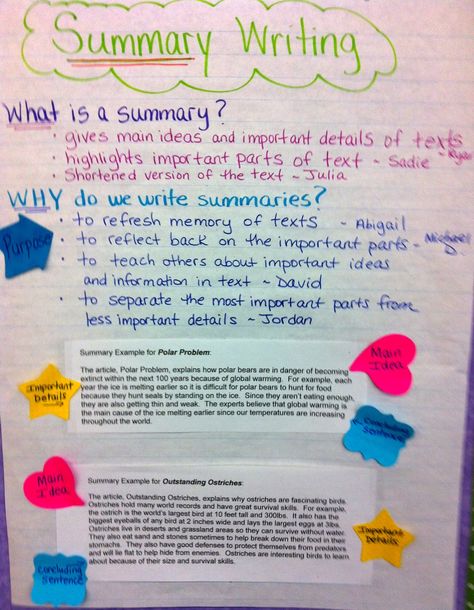 Summary Writing
What is a summary?
• gives main ideas and important details of texts
~ Ryan
• highlights important parts of text ~ Sadie
• Shortened version of the text ~ Julia
WHY do we write summaries?
Purpose
• to refresh memory of texts ~ Abigail
• to reflect back on the important parts ~ Michael D.
• to teach others about important ideas
and information in text ~ David
• to separate the most important parts from
less important details ~ Jordan
Summary Example for Polar Problem:
The article, Polar Problem, explains how polar bears are in danger of becoming
extinct within the next 100 years because of global warming. For example, each
year the ice is melting earlier so it is difficult for polar bears to hunt for food
because they hunt seals by standing on the ice. Since they aren't eating enough,
they are also getting thin and weak. The experts believe that global warming is
the main cause of the ice melting earlier since our temperatures are increasing
throughout the world.
Main Idea
Important Details
Concluding Sentence
Main Idea
Summary Example for Outstanding Ostriches:
The article, Outstanding Ostriches, explains why ostriches are fascinating birds.
Ostriches hold many world records and have great survival skills. For example,
the ostrich is the world's largest bird at 10 feet tall and 300lbs. It also has the
biggest eyeballs of any bird at 2 inches wide and lays the largest eggs at 3lbs.
Ostriches live in deserts and grassland areas so they can survive without water.
They also eat sand and stones sometimes to help break down their food in their
stomachs. They also have good defenses to protect themselves from predators
and will lie flat to help hide from enemies. Ostriches are interesting birds to learn
about because of their size and survival skills.
Important Details
Concluding Sentence